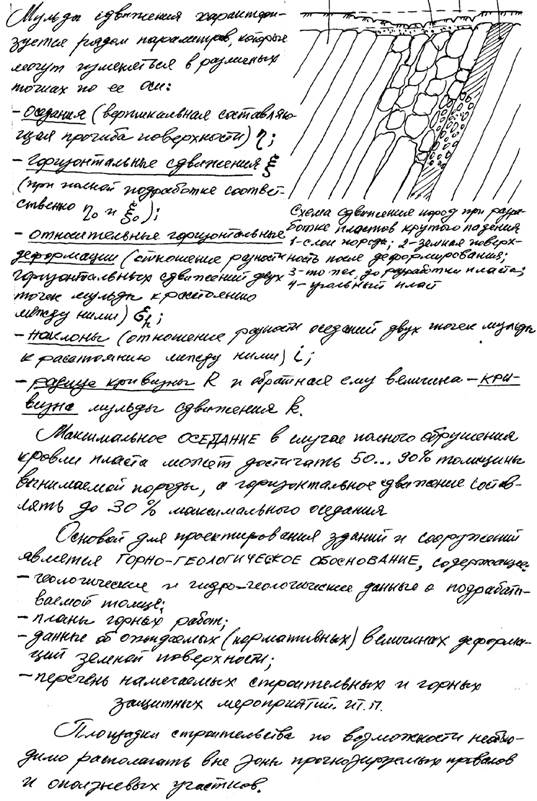 Мульда сдвижения характери-
зуется рядом параметров, которые
могут изменяться в различных
точках по ее оси:
- оседания (вертикальная составляю-
щая прогиба поверхности) η;
- горизонтальные сдвижения ξ
(при полной подработке соответ-
ственно η₀ и ξ₀);
- относительные горизонтальные
деформации (отношение разности
горизонтальных сдвижений двух
точек мульды к расстоянию
между ними)
Схема сдвижения пород при разра-
ботке пластов крутого падения
1-слои породы; 2-земная поверх-
ность после деформирования;
3-то же, до разработки пласта;
4-угольный пласт
- наклоны (отношение разности оседаний двух точек мульды
к расстоянию между ними) i;
- радиус кривизны R и обратная ему величина - кри-
визна мульды сдвижения k.
Максимальное ОСЕДАНИЕ в случае полного обрушения
кровли пласта может достигать 50...90% толщины
вынимаемой породы, а горизонтальное сдвижение состав-
лять до 30% максимального оседания
Основой для проектирования зданий и сооружений
является ГОРНО-ГЕОЛОГИЧЕСКОЕ ОБОСНОВАНИЕ, содержащее:
- геологические и гидро-геологические данные о подрабаты-
ваемой толще;
- планы горных работ;
- данные об ожидаемых (нормативных) величинах деформа-
ций земной поверхности;
- перечень намечаемых строительных и горных
защитных мероприятий и т.п.
Площадки строительства по возможности необхо-
димо располагать вне зоны прогнозируемых провалов
и оползневых участков.